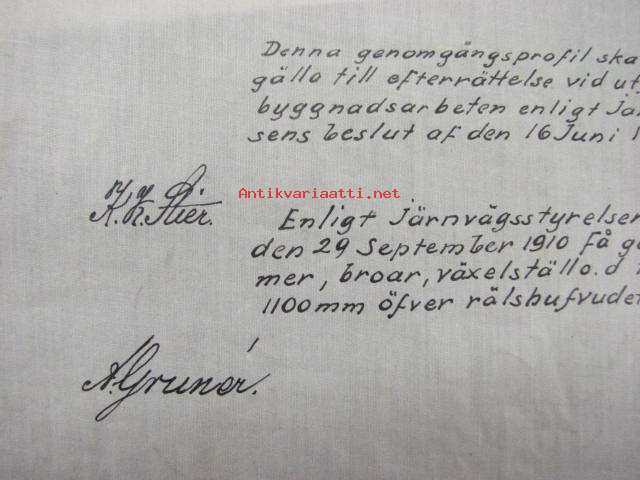 Denna genomgångsprofil ska
gälla till efterrättelse vid ut
byggnadsarbeten enligt Jär
sens beslut af den 16 Juni 1
Antikvariaatti.net
Enligt Järnvägsstyrelsen
den 29 September 1910 få
mer, broar, växelställ o.d
1100 mm öfver rälshufvudet
A. Grunér.